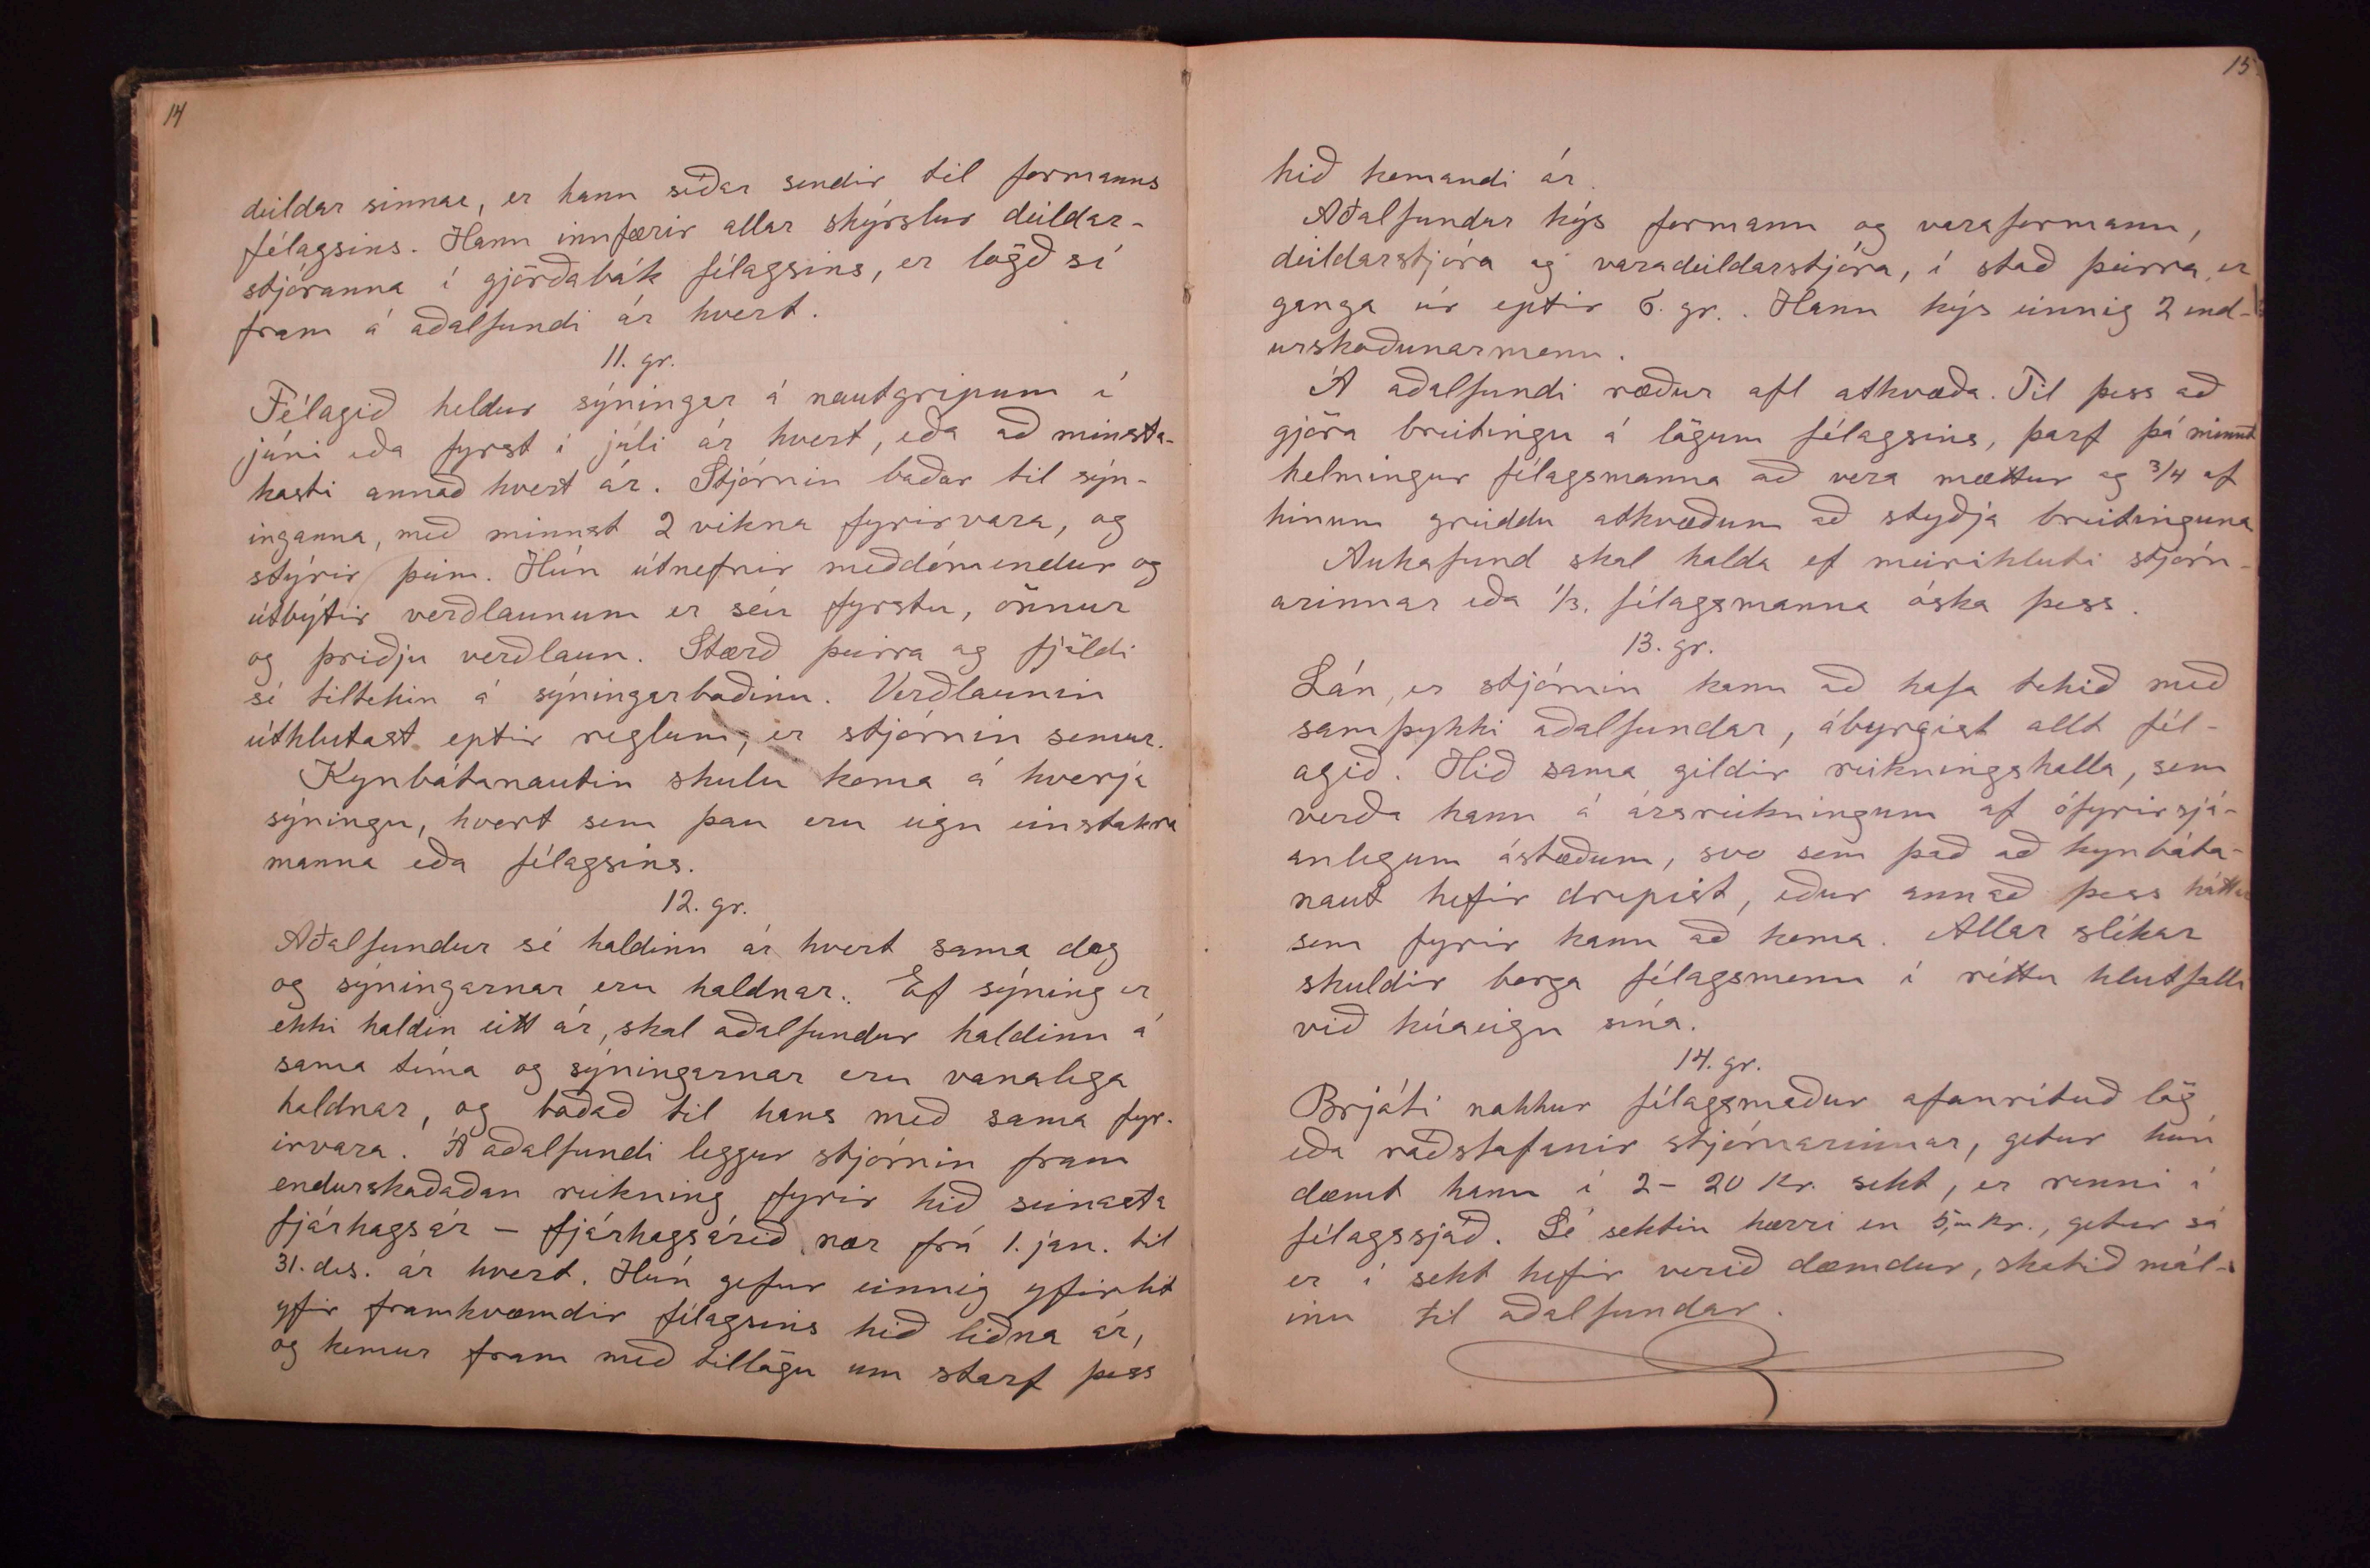 14
deildar sinnar, er hann síðar sendir til formanns
félagsins. Hann innfærir allar skýrslur deildar-
stjóranna í gjörðabók félagsins, er lögð sé
fram á aðalfundi ár hvert.
11. gr.
Félagið heldur sýningar á nautgripum í
júní eða fyrst í júlí ár hvert, eða að minsta-
kosti annað hvert ár. Stjórnin boðar til sýn-
inganna, með minnst 2 vikna fyrirvara, og
stýrir þeim. Hún útnefnir meðdómendur og
útbýtir verðlaunum er séu fyrstu, önnur
og þriðju verðlaun. Stærð þeirra og fjöldi
sé tiltekin á sýningarboðinu. Verðlaunin
úthlutast eptir reglum, er stjórnin semur.
Kynbótanautin skulu koma á hverja
sýningu, hvort sem þau eru eign einstakra
manna eða félagsins.
12. gr.
Aðalfundur sé haldinn ár hvert sama dag
og sýningarnar eru haldnar. Ef sýning er
ekki haldin eitt ár, skal aðalfundur haldinn á
sama tíma og sýningarnar eru vanalega
haldnar, og boðað til hans með sama fyr-
irvara. Á aðalfundi leggur stjórnin fram
endurskoðaðan reikning fyrir hið seinasta
fjárhagsár – fjárhagsárið nær frá 1. jan. til
31. des. ár hvert. Hún gefur einnig yfirlit
yfir framkvæmdir félagsins hið liðna ár,
og kemur fram með tillögu um starf þess
15.
hið komandi ár.
Aðalfundur kýs formann og varaformann,
deildarstjóra og varadeildarstjóra, í stað þeirra er
ganga úr eptir 6. gr. Hann kýs einnig 2 end-
urskoðunarmenn.
Á aðalfundi ræður afl atkvæða. Til þess að
gjöra breitingu á lögum félagsins, þarf þó minnst
helmingur félagsmanna að vera mættur og 3/4 af
hinum greiddu atkvæðum að styðja breitinguna
Aukafund skal halda ef meirihluti stjórn-
arinnar eða 1/3. félagsmanna óska þess.
13. gr.
Lán, er stjórnin kann að hafa tekið með
samþykki aðalfundar, ábyrgist allt fél-
agið. Hið sama gildir reikningshalla, sem
verða kann á ársreikningum af ófyrirsjá-
anlegum ástæðum, svo sem það að kynbóta-
naut hefir drepist, eður annað þess háttar
sem fyrir kann að koma. Allar slíkar
skuldir borga félagsmenn í réttu hlutfalli
við kúaeign sína.
14. gr.
Brjóti nokkur félagsmaður ofanrituð lög
eða ráðstafanir stjórnarinnar, getur hún
dæmt hann í 2 – 20 Kr. sekt, er renni í
félagssjóð. Sé sektin hærri en 5,00 kr., getur sá
er í sekt hefir verið dæmdur, skotið mál-
inu til aðalfundar.